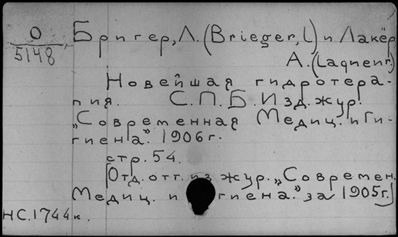 О
5148
Бригер, Л. (Brieger, L) и Лакёр
А. (Laqneur)
Новейшая гидротера-
пия. С.П.Б. Изд. жур.
„Современная Медиц. и Ги-
гиена". 1906 г.
стр. 54.
[Отд. отт. из жур. „Современ.
Медиц. и гиена." за 1905 г.]
НС. 1744 к.